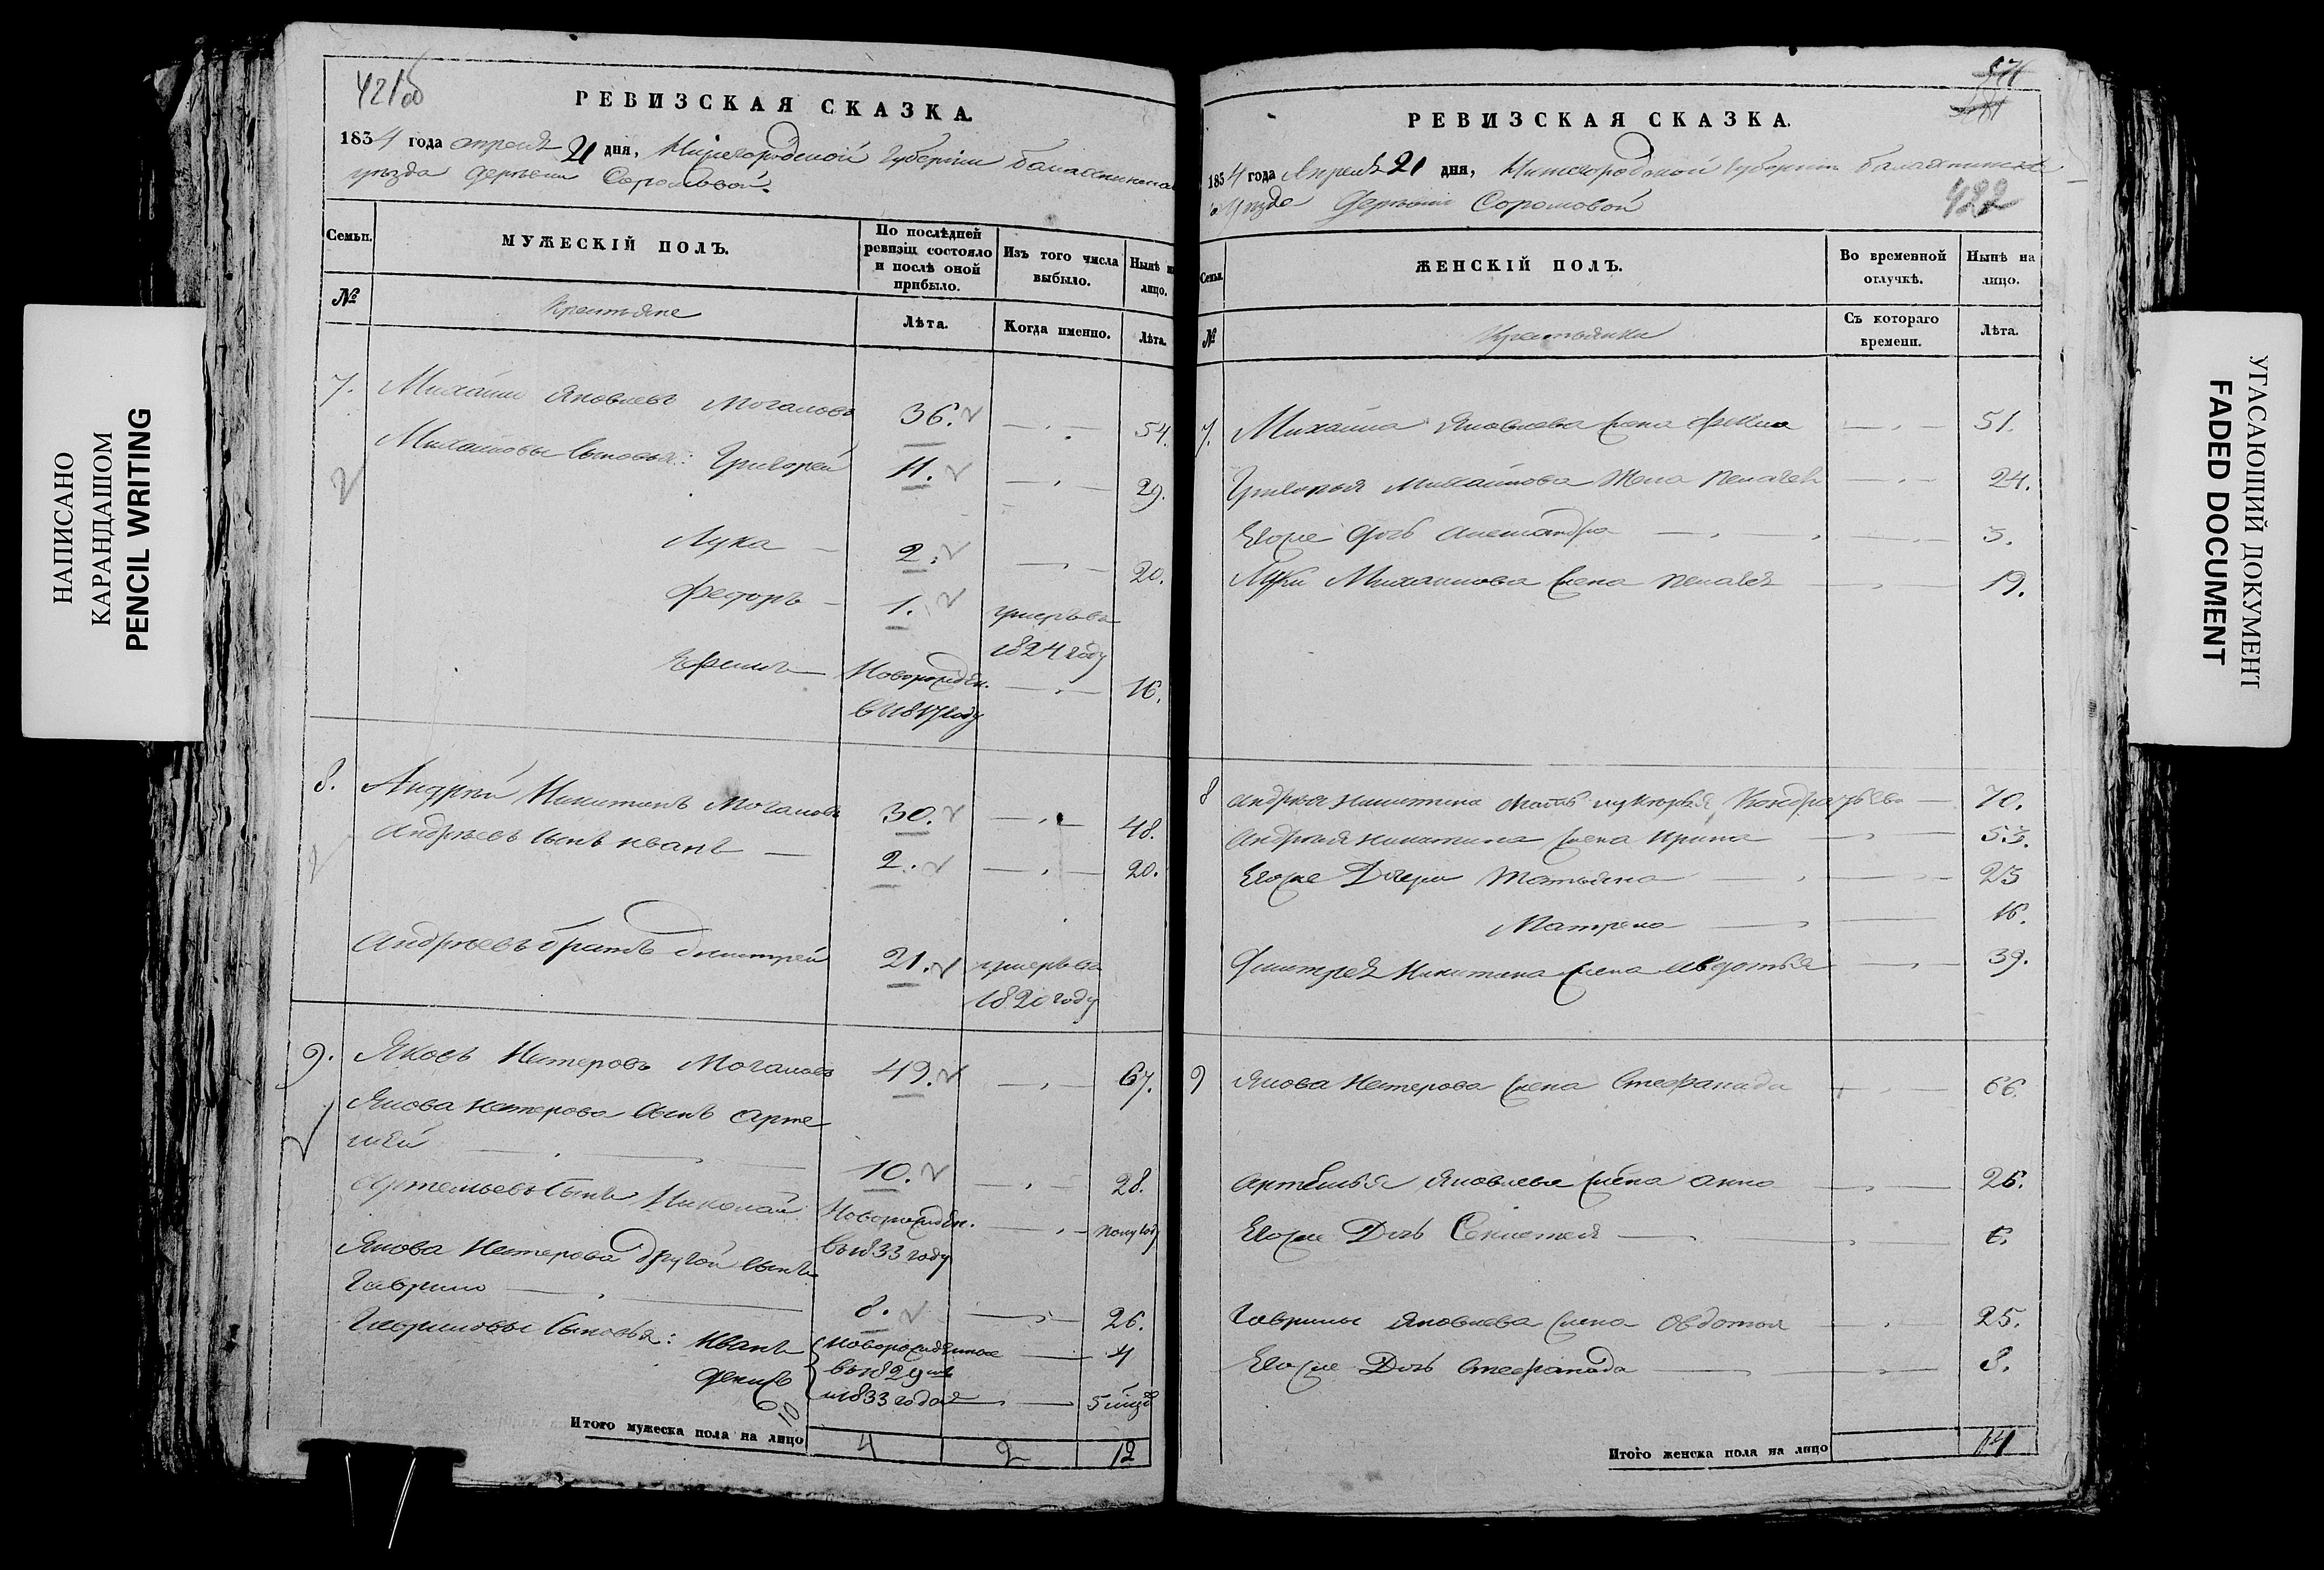 421об
РЕВИЗСКАЯ СКАЗКА.
1834 года апреля 21 дня, Нижегородской губернии Балахнинскаго
уѣзда деревни Соромовой.
Семьи.
МУЖЕСКІЙ ПОЛЪ.
По послѣдней ревизіи состояло и послѣ оной прибыло.
Изъ того числа выбыло.
Нынѣ на лицо.
№
Крестьяне
Лѣта.
Когда именно.
Лѣта.
7. Михайло Яковлевъ Мочаловъ 36. 54.
Михайловы сыновья: Григорей 11. 29.
Лука 2. 20.
Федоръ 1. умеръ въ
1824 году
Ефимъ Новорожден. 16.
въ 1817 году
8. Андрей Никитинъ Мочаловъ 30. 48.
Андреевъ сынъ Иванъ 2. 20.
Андреевъ братъ Дмитрей 21. умеръ въ
1820 году
9. Яковъ Нестеровъ Мочаловъ 49. 67.
Якова Нестерова сынъ Арте
мей 10. 28.
Артемьевъ сынъ Николай Новорожден. полугод
въ 1833 году
Якова Нестерова другой сынъ
Гаврило 8. 26.
Гавриловы сыновья: Иванъ новорожденные 4
Денисъ въ 1829 и въ
1833 годах 5
10
Итого мужеска пола на лицо 4 2 12
РЕВИЗСКАЯ СКАЗКА.
1834 года Апреля 21 дня, Нижегородской губернии Балахнинска
го уезда Деревни Соромовой
422
Семьи
ЖЕНСКІЙ ПОЛЪ.
Во временной отлучкѣ.
Нынѣ на лицо.
№
Крестьянки
Съ котораго времени.
Лѣта.
7. Михайла Яковлева жена Фекла 51.
Григорья Михайлова жена Пелагея 24.
Егоже дочь Александра 3.
Луки Михайлова жена Пелагея 19.
8 Андрея Никитина мать Кондратьева 70.
Андрея Никитина жена Ирина 53.
Егоже Дочери Татьяна 23
Матрена 16.
Дмитрея Никитина жена Авдотья 39.
9 Якова Нестерова жена Стефанида 66.
Артемья Яковлева жена Анна 26.
Егоже Дочь 6.
Гаврилы Яковлева жена Овдотья 25.
Егоже Дочь Стефанида 3.
Итого женска пола на лицо 14
НАПИСАНО
КАРАНДАШОМ
PENCIL WRITING
УГАСАЮЩИЙ ДОКУМЕНТ
FADED DOCUMENT